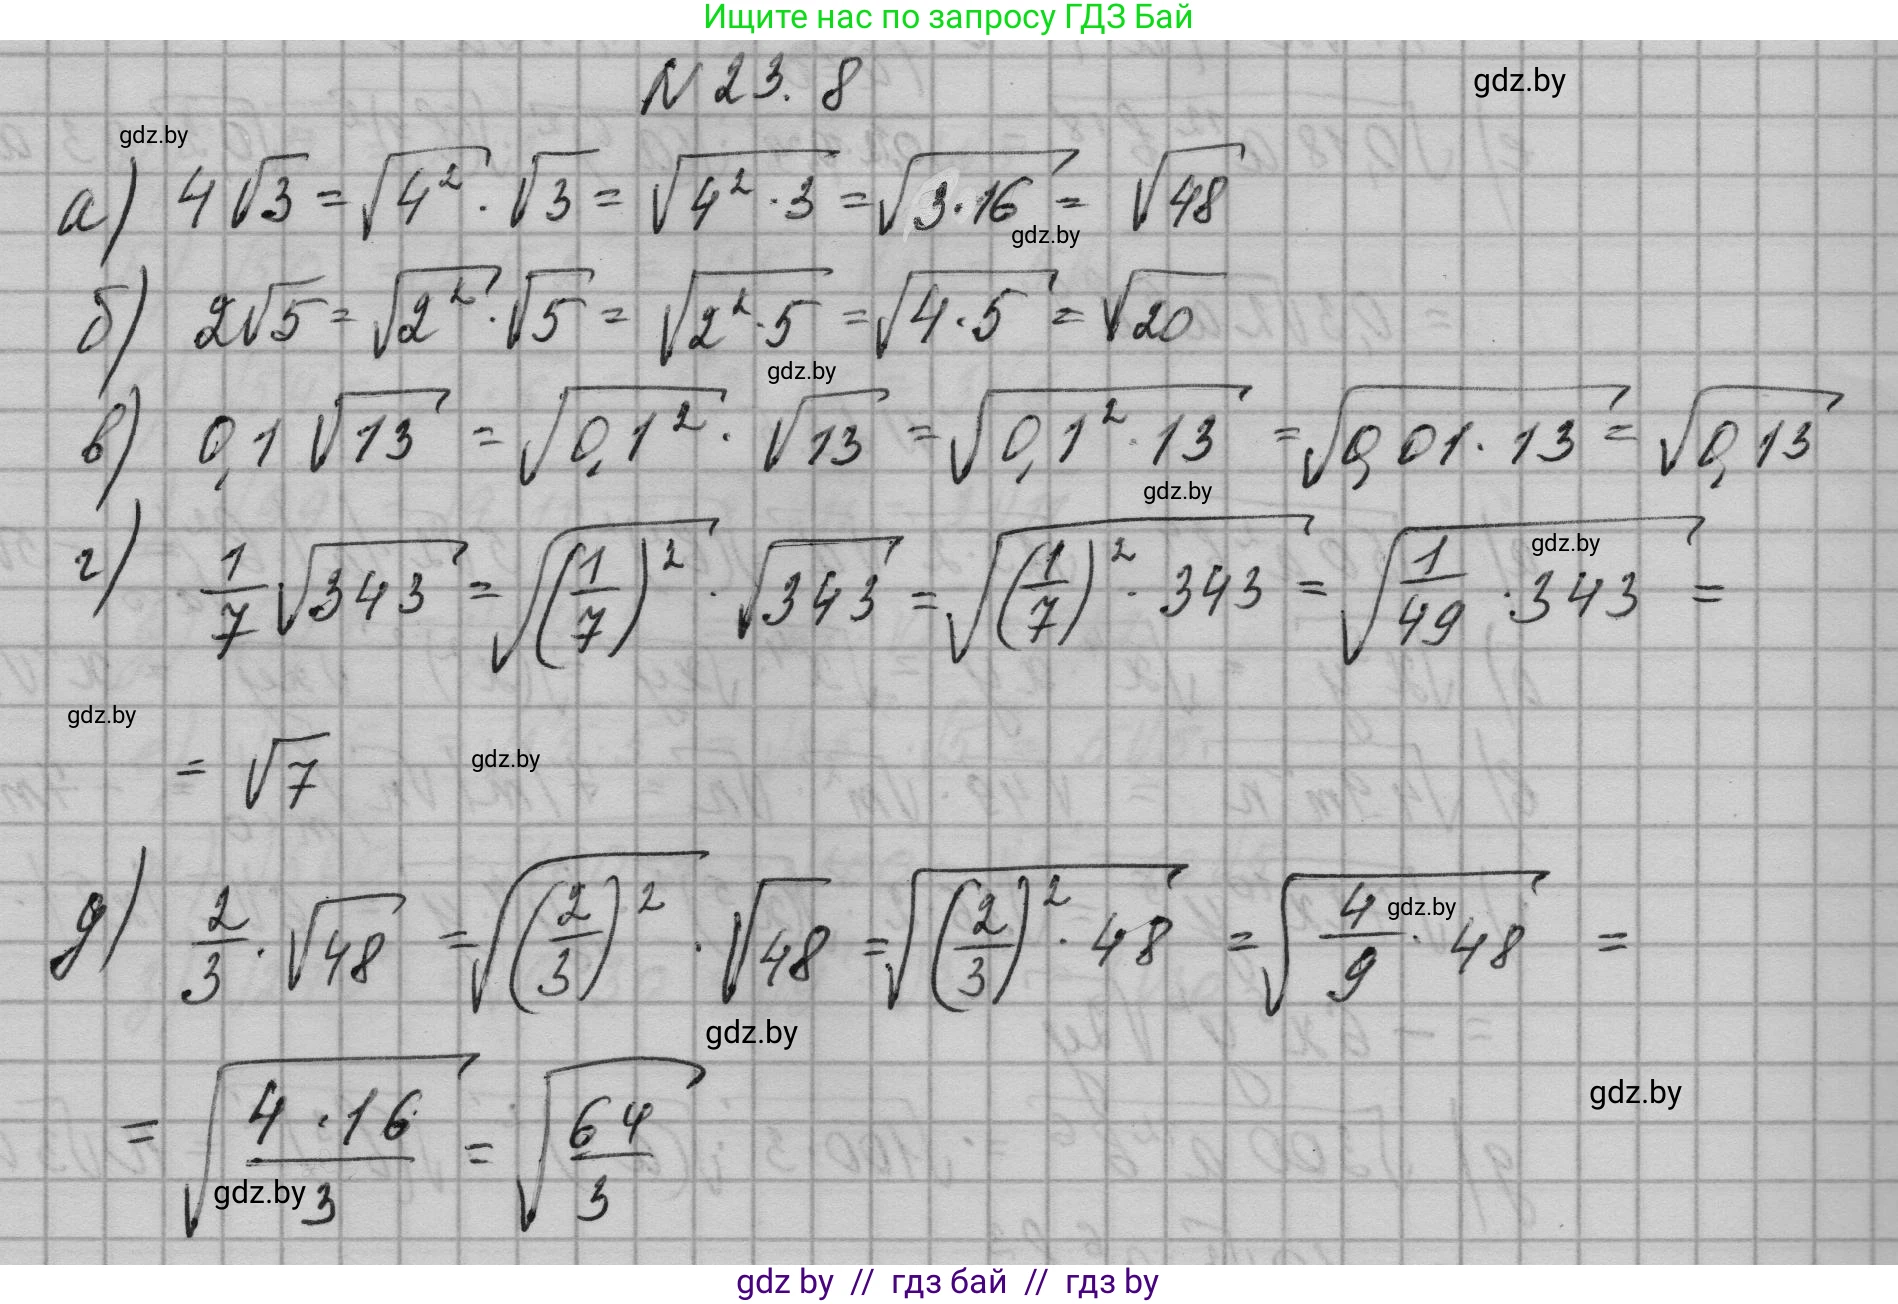 Ищите нас по запросу ГДЗ Бай
N 23. 8
gdz.by
gdz.by
а) 4√3 = √4² · √3 = √4² · 3 = √3·16 = √48
gdz.by
б) 2√5 = √2² · √5 = √2² · 5 = √4 · 5 = √20
gdz.by
в) 0,1 √13 = √0,1² · √13 = √0,1² · 13 = √0,01 · 13 = √0,13
gdz.by
г) 1/7 √343 = √(1/7)² · √343 = √(1/7)² · 343 = √1/49 · 343 =
gdz.by
gdz.by
= √7
gdz.by
д) 2/3 · √48 = √(2/3)² · √48 = √(2/3)² · 48 = √4/9 · 48 =
gdz.by
gdz.by
gdz.by
= √4 · 16/3 = √64/3
gdz.by
gdz by // гдз бай // гдз by